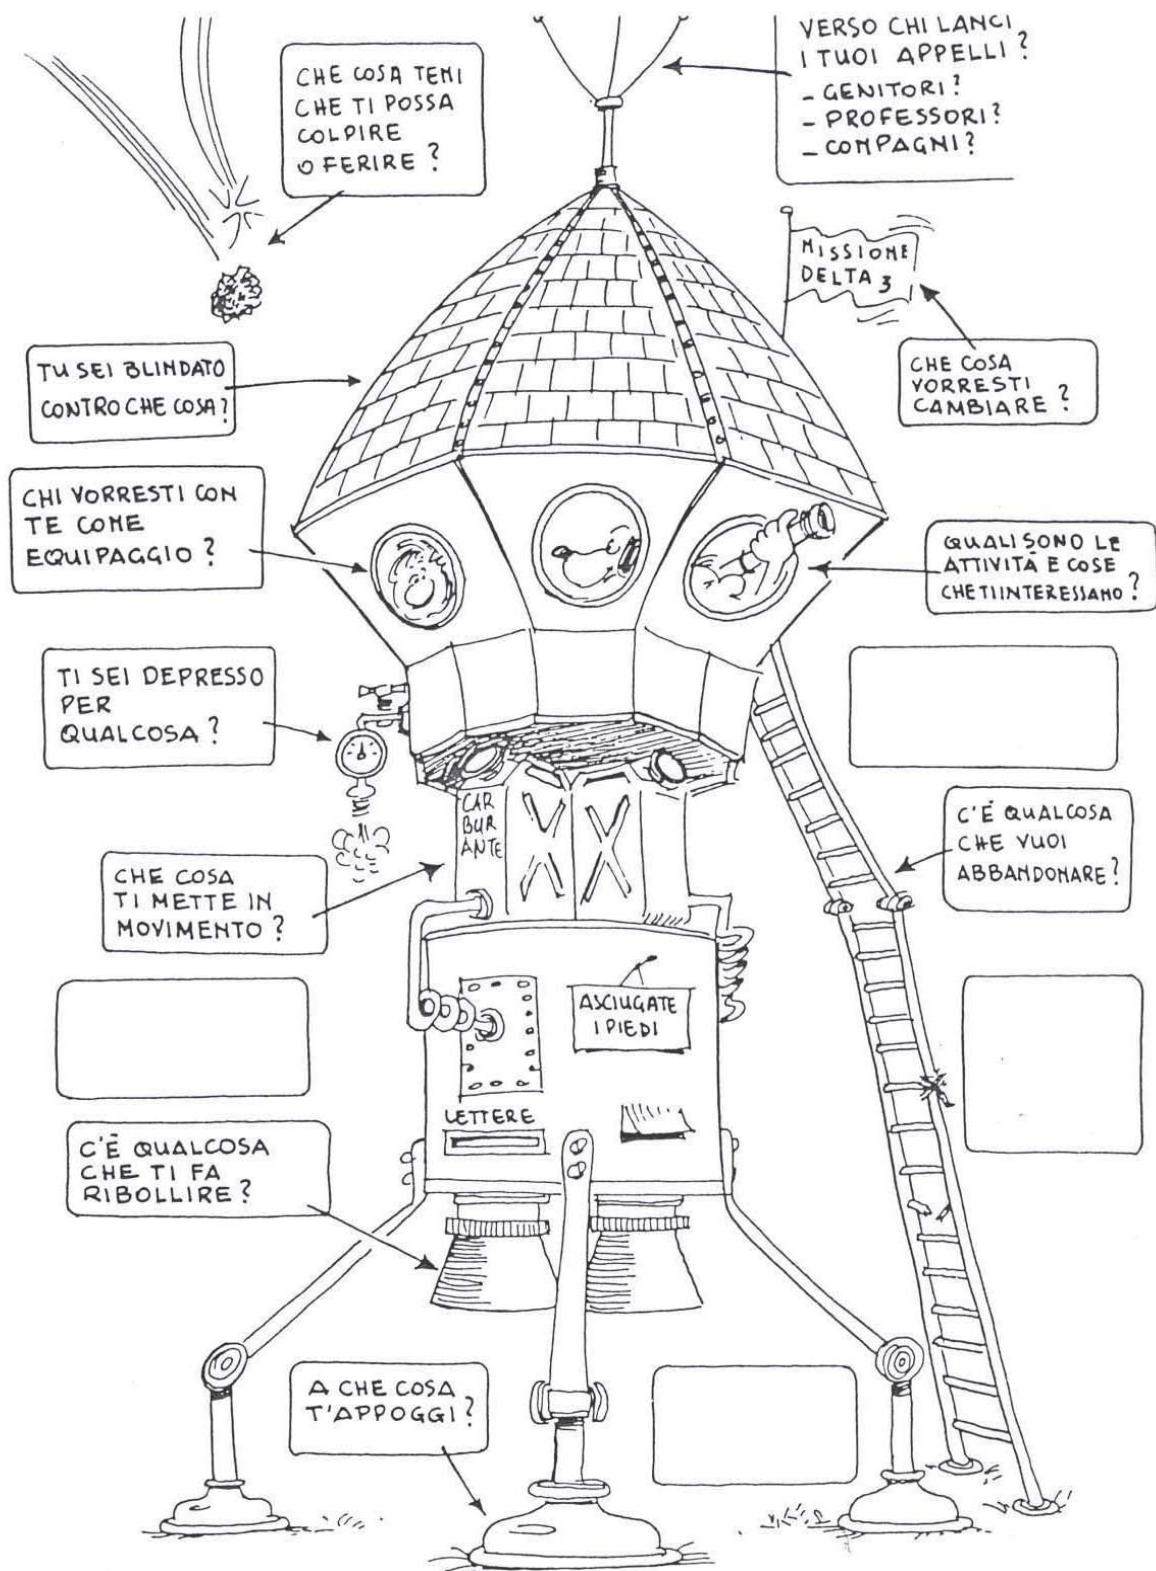 CHE COSA TEMI
CHE TI POSSA
COLPIRE
O FERIRE?
VERSO CHI LANCI
I TUOI APPELLI?
- GENITORI?
- PROFESSORI?
- COMPAGNI?
MISSIONE
DELTA 3
TU SEI BLINDATO
CONTRO CHE COSA?
CHE COSA
VORRESTI
CAMBIARE?
CHI VORRESTI CON
TE COME
EQUIPAGGIO?
QUALI SONO LE
ATTIVITÀ E COSE
CHE TI INTERESSANO?
TI SEI DEPRESSO
PER
QUALCOSA?
CAR
BUR
ANTE
C'È QUALCOSA
CHE VUOI
ABBANDONARE?
CHE COSA
TI METTE IN
MOVIMENTO?
ASCIUGATE
I PIEDI
LETTERE
C'È QUALCOSA
CHE TI FA
RIBOLLIRE?
A CHE COSA
T'APPOGGI?